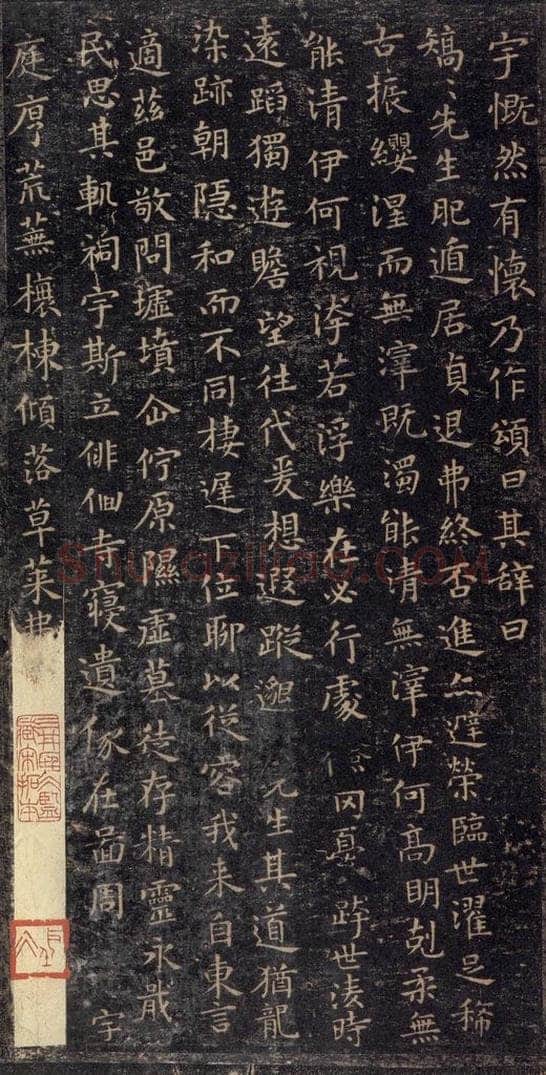 宇慨然有懷乃作頌曰其辭曰
矯〻先生肥遁居貞退弗終否進亦避榮臨世濯足稀
古振纓涅而無滓既濁能清無滓伊何高明剋柔無
能清伊何視洿若浮樂在必行處儉罔憂跨世淩時
遠蹈獨遊瞻望往代爰想遐蹤邈先生其道猶龍
染跡朝隱和而不同棲遲下位聊以從容我来自東言
適茲邑敬問墟墳企佇原隰虛墓徒存精靈永戢
民思其軌祠宇斯立徘徊寺寢遺像在啚周宇
庭序荒蕪榱棟傾落草萊弗
Shufaziliao.COM